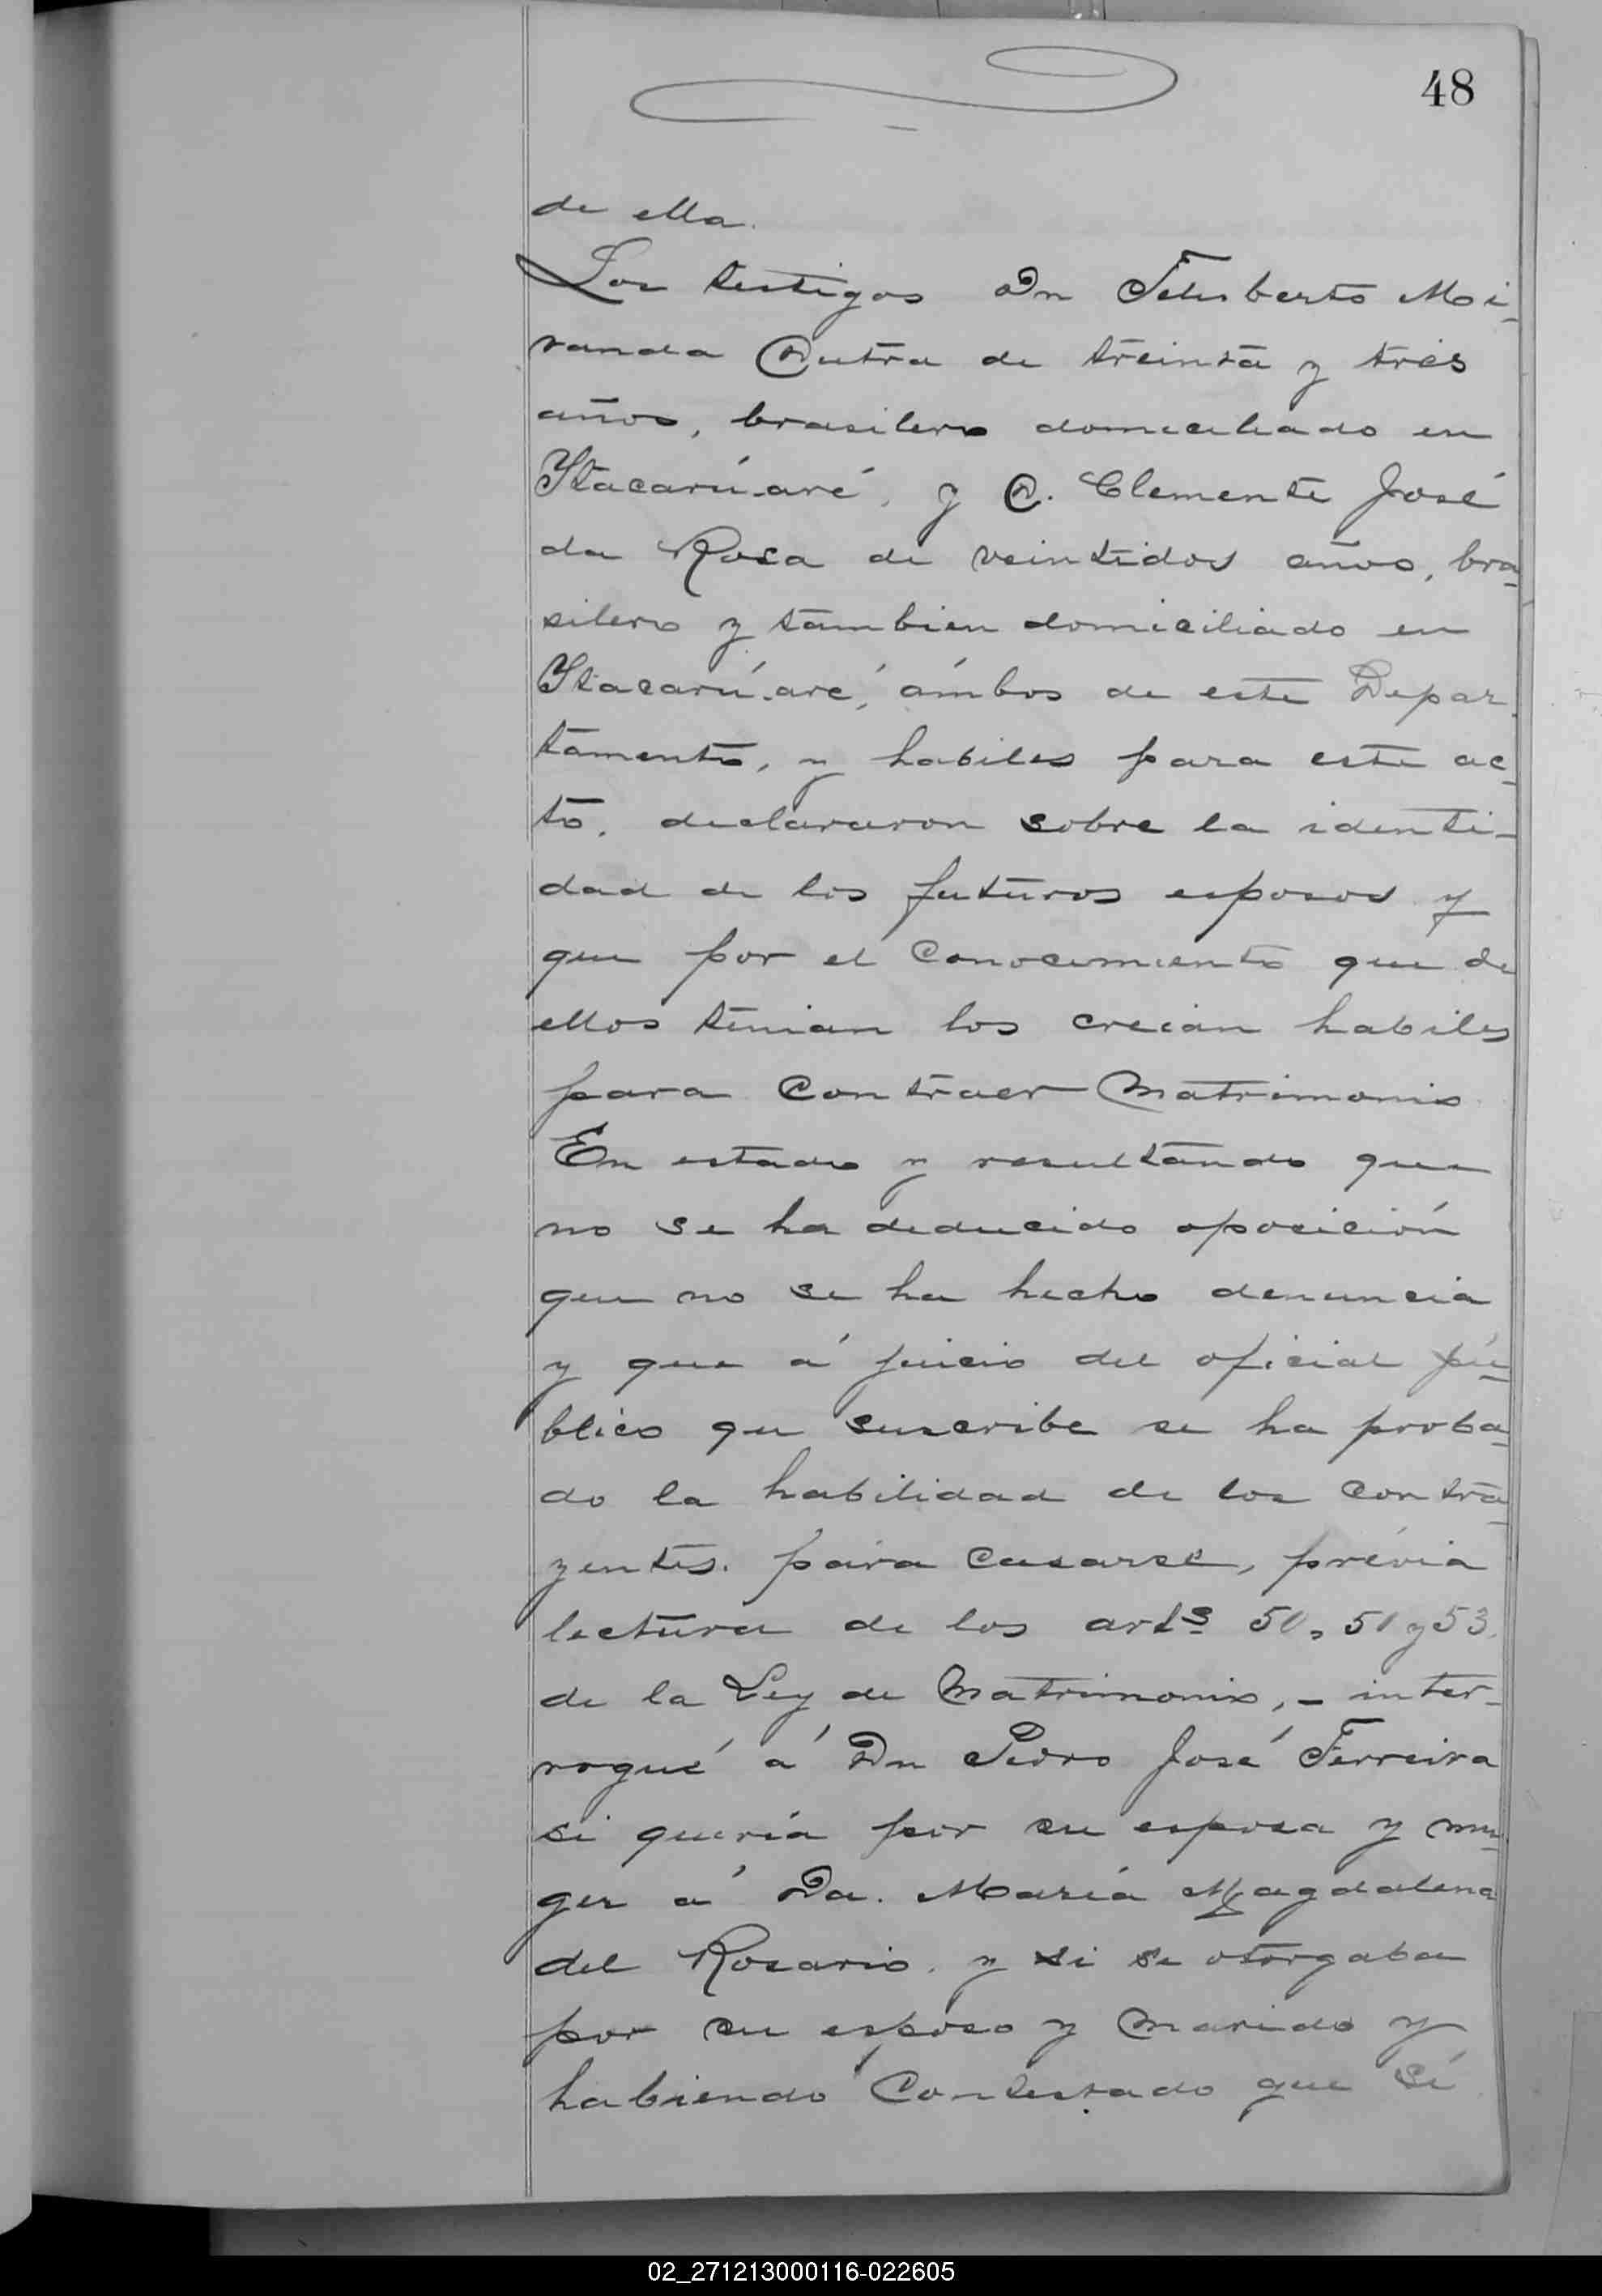 48
de ella.
Los testigos Dn Feliberto Mi-
randa Dutra de treinta y tres
años, brasilero domiciliado en
Ytacarú-aré, y D. Clemente José
da Rosa de veintidos años, bra-
silero y tambien domiciliado en
Ytacarú-aré, ámbos de este Depar-
tamento, y habiles para este ac-
to, declararon sobre la identi-
dad de los futuros esposos y
que por el conocimiento que de
ellos tenian los creian habiles
para contraer Matrimonio
En estado y resultando que
no se ha deducido oposición
que no se ha hecho denuncia
y que á juicio del oficial pú-
blico que suscribe se ha proba-
do la habilidad de los contra-
yentes. para casarse, prévia
lectura de los arts 50, 51 y 53.
de la Ley de Matrimonio, - inter-
rogué á Dn Pedro José Ferreira
si quería por su esposa y mu-
ger á Da. María Magdalena
del Rosario. y si se otorgaba
por su esposo y marido y
habiendo contestado que sí
02_271213000116-022605